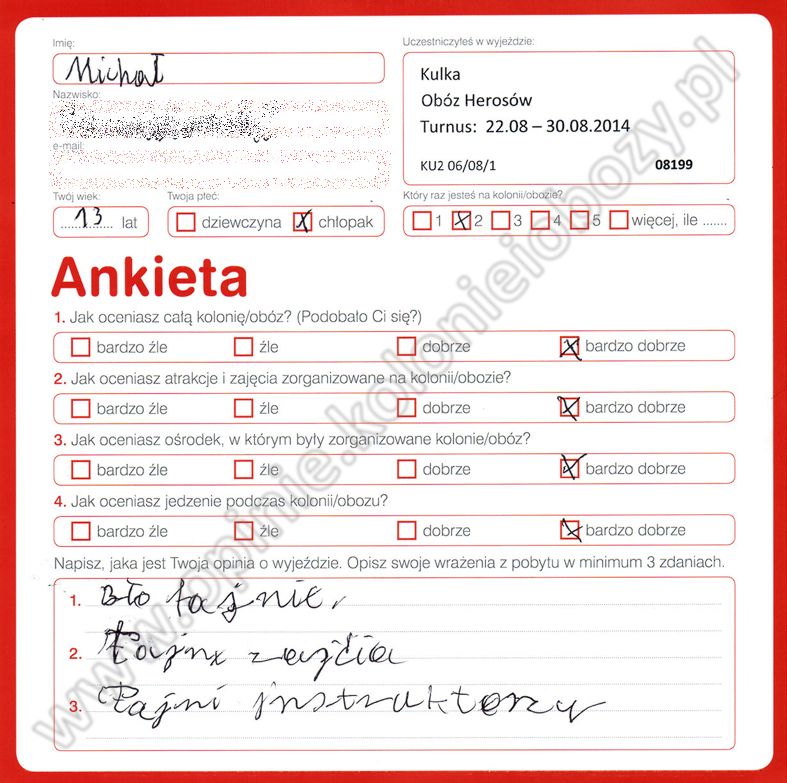 Imię:
Michał
Nazwisko:
e-mail:
Uczestniczyłeś w wyjeździe:
Kulka
Obóz Herosów
Turnus: 22.08 – 30.08.2014
KU2 06/08/1 08199
Twój wiek:
13 lat
Twoja płeć:
dziewczyna chłopak
Który raz jesteś na kolonii/obozie?
1 2 3 4 5 więcej, ile .......
Ankieta
1. Jak oceniasz całą kolonię/obóz? (Podobało Ci się?)
bardzo źle źle dobrze bardzo dobrze
2. Jak oceniasz atrakcje i zajęcia zorganizowane na kolonii/obozie?
bardzo źle źle dobrze bardzo dobrze
3. Jak oceniasz ośrodek, w którym były zorganizowane kolonie/obóz?
bardzo źle źle dobrze bardzo dobrze
4. Jak oceniasz jedzenie podczas kolonii/obozu?
bardzo źle źle dobrze bardzo dobrze
Napisz, jaka jest Twoja opinia o wyjeździe. Opisz swoje wrażenia z pobytu w minimum 3 zdaniach.
1. Bło fajnie.
2. Fajne zajćia
3. Fajni instruktorzy
www.opinie.kolonieiobozy.pl